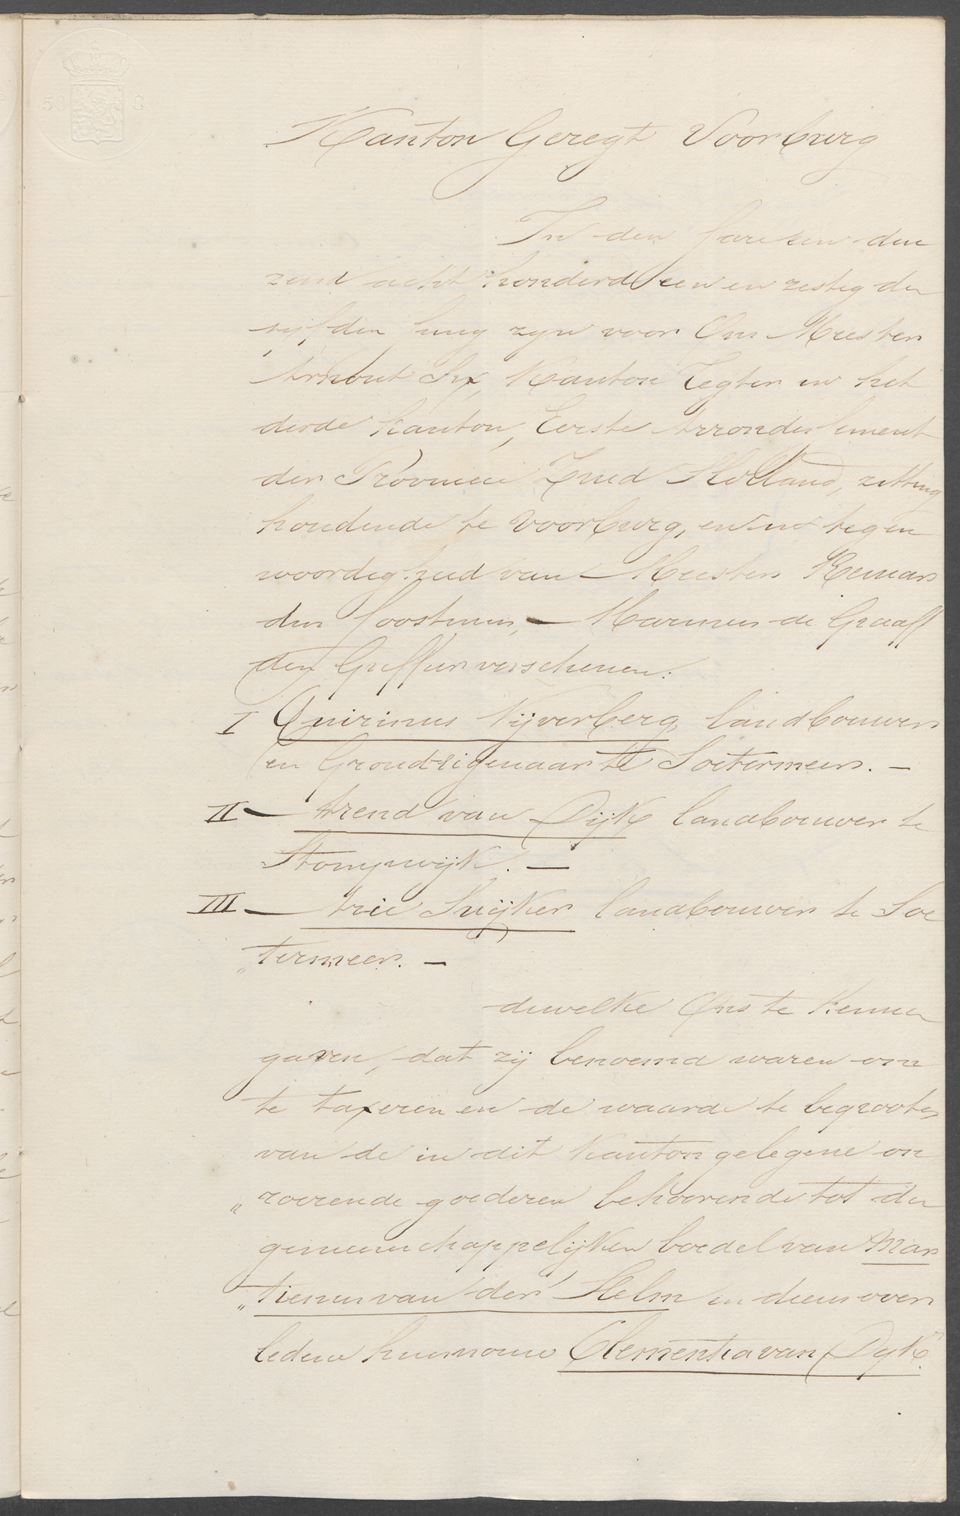 Kanton Geregt Voorburg
In den Jare een dui
zend acht honderd een en zestig den
vijfden Junij zijn voor Ons Meester
Arnout Six, Kanton Regter in het
derde kanton, Eerste Arrondissement
der Provincie Zuid Holland, zitting
houdende te Voorburg, en in tegen
woordigheid van Meester Reinar
dus Joostinus, Marinus de Graaff
den Griffier verschenen:
I Quirinus Vijverberg landbouwer
en Grondeigenaar te Soetermeer. —
II — Arend van Dijk landbouwer te
Stompwijk. —
III — Arie Suijker landbouwer te Soe
„termeer. —
dewelke Ons te kennen
gaven, dat zij benoemd waren om
te taxeren en de waarde te begrooten
van de in dit Kanton gelegene on
„roerende goederen behoorende tot den
gemeenschappelijken boedel van Mar
„tinus van der Helm en diens over
ledene huisvrouw Clementia van Dijk.